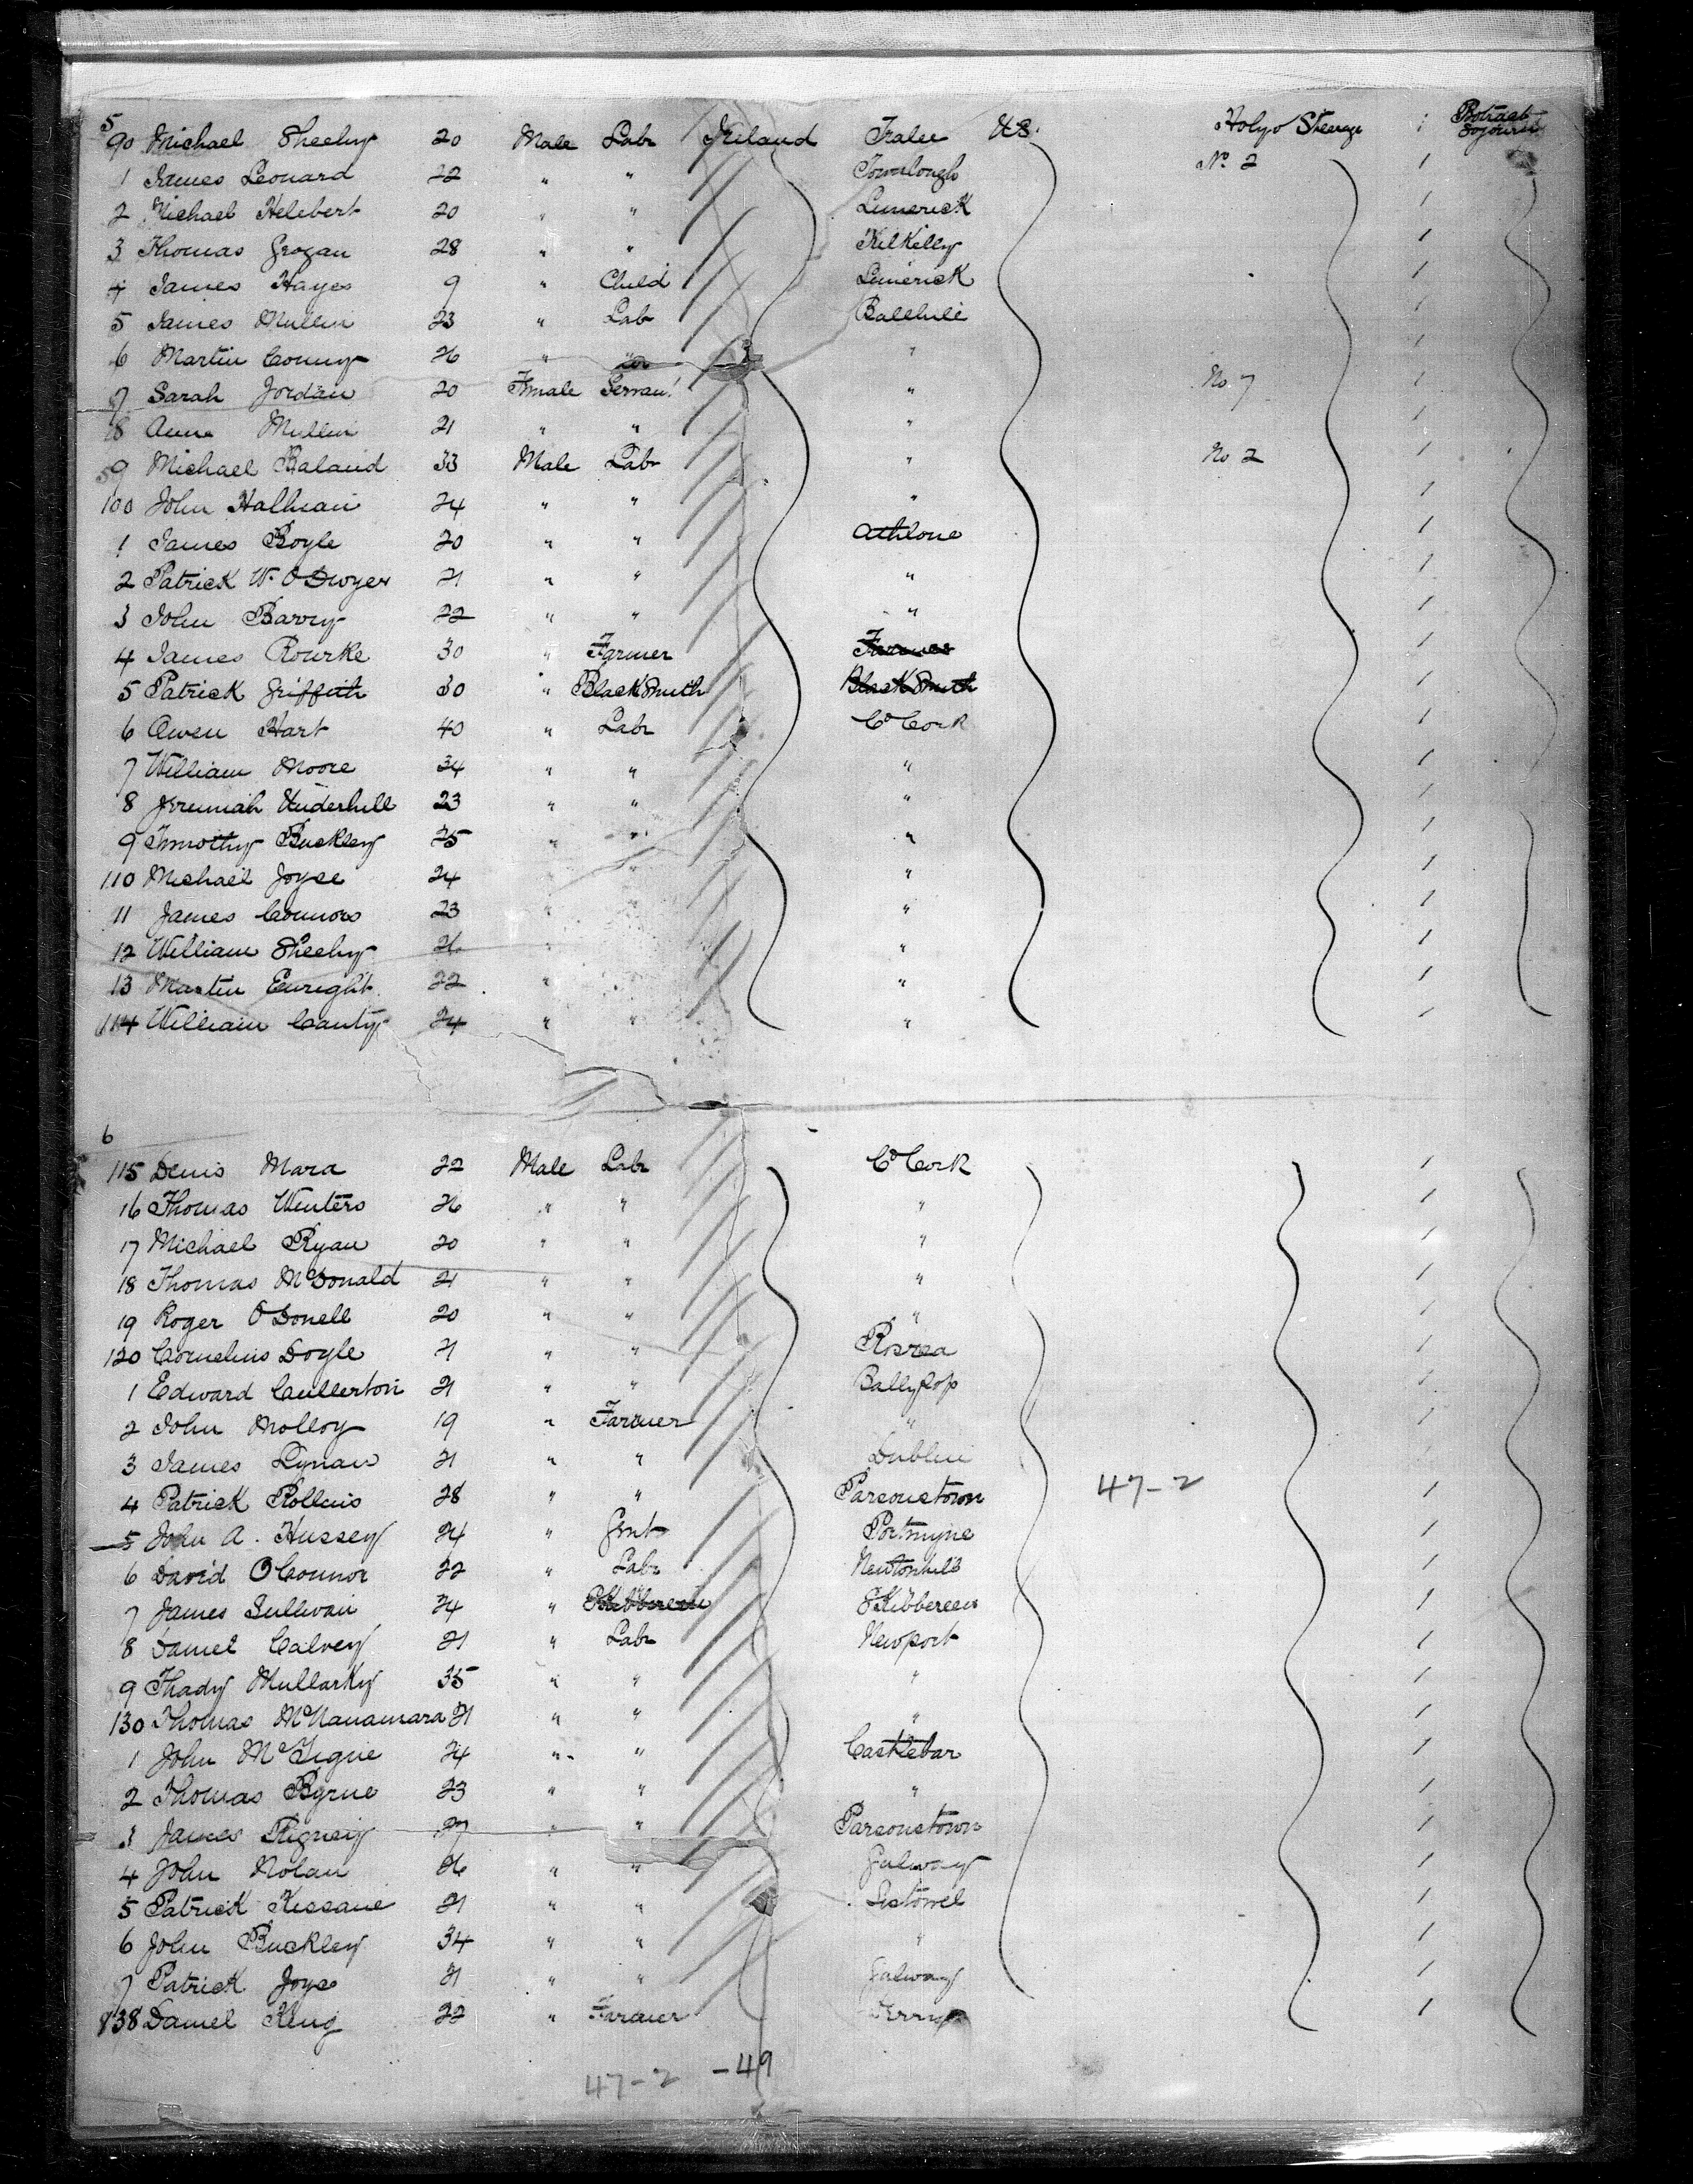 5
90 Michael Sheehy 20 Male Labr Ireland Tralee U.S. Holyo Steerage 1 Protract Sojourn
1 James Leonard 22 " " Tourlough No. 2 1
2 Michael Helebert 20 " " Limerick 1
3 Thomas Grogan 28 " " Kilkelly 1
4 James Hayes 9 " Child Limerick 1
5 James Mullin 23 " Labr 1
6 Martin Conny 26 " " " 1
7 Sarah Jordan 20 Female Servant " No 7 1
8 Anne Mullin 21 " " " 1
9 Michael Baland 33 Male Labr " No 2 1
100 John Halhean 24 " " " 1
1 James Boyle 20 " " Athlone 1
2 Patrick W. O'Dwyer 21 " " " 1
3 John Barry 22 " " " 1
4 James Rourke 30 " Farmer Farmer 1
5 Patrick Griffith 30 " BlackSmith BlackSmith 1
6 Owen Hart 40 " Labr Co Cork 1
7 William Moore 34 " " " 1
8 Jeremiah Underhill 23 " " " 1
9 Timothy Buckley 25 " " " 1
110 Michael Joyce 24 " " " 1
11 James Connors 23 " " " 1
12 William Sheehy 21 " " 1
13 Martin Enright 22 " " 1
114 William Canty 24 " " " 1
6
115 Denis Mara 22 Male Labr Co Cork 1
16 Thomas Winters 26 " " " 1
17 Michael Ryan 20 " " " 1
18 Thomas McDonald 21 " " " 1
19 Roger O'Donell 20 " " " 1
120 Cornelius Doyle 21 " " Roscrea 1
1 Edward Cullerton 21 " " 1
2 John Molloy 19 " Farmer " 1
3 James Lynan 21 " " Dublin
4 Patrick Rollins 28 " " Parsonstown 47-2 1
5 John A. Hussey 24 " Gent 1
6 David O'Connor 22 " Labr 1
7 James Sullivan 24 " Skibbereen Skibbereen 1
8 Daniel Calvey 21 " Labr Newport 1
9 Thady Mullarky 35 " " " 1
130 Thomas McNanamara 21 " " " 1
1 John McTigue 24 " " Castlebar 1
2 Thomas Byrne 23 " " " 1
3 James Rigney 27 " " Parsonstown 1
4 John Nolan 26 " " Galway 1
5 Patrick Kissane 21 " " Listowel 1
6 John Buckley 34 " " " 1
7 Patrick Joyce 21 " " Galway 1
138 Daniel King 22 " Farmer Derry 1
47-2 -49